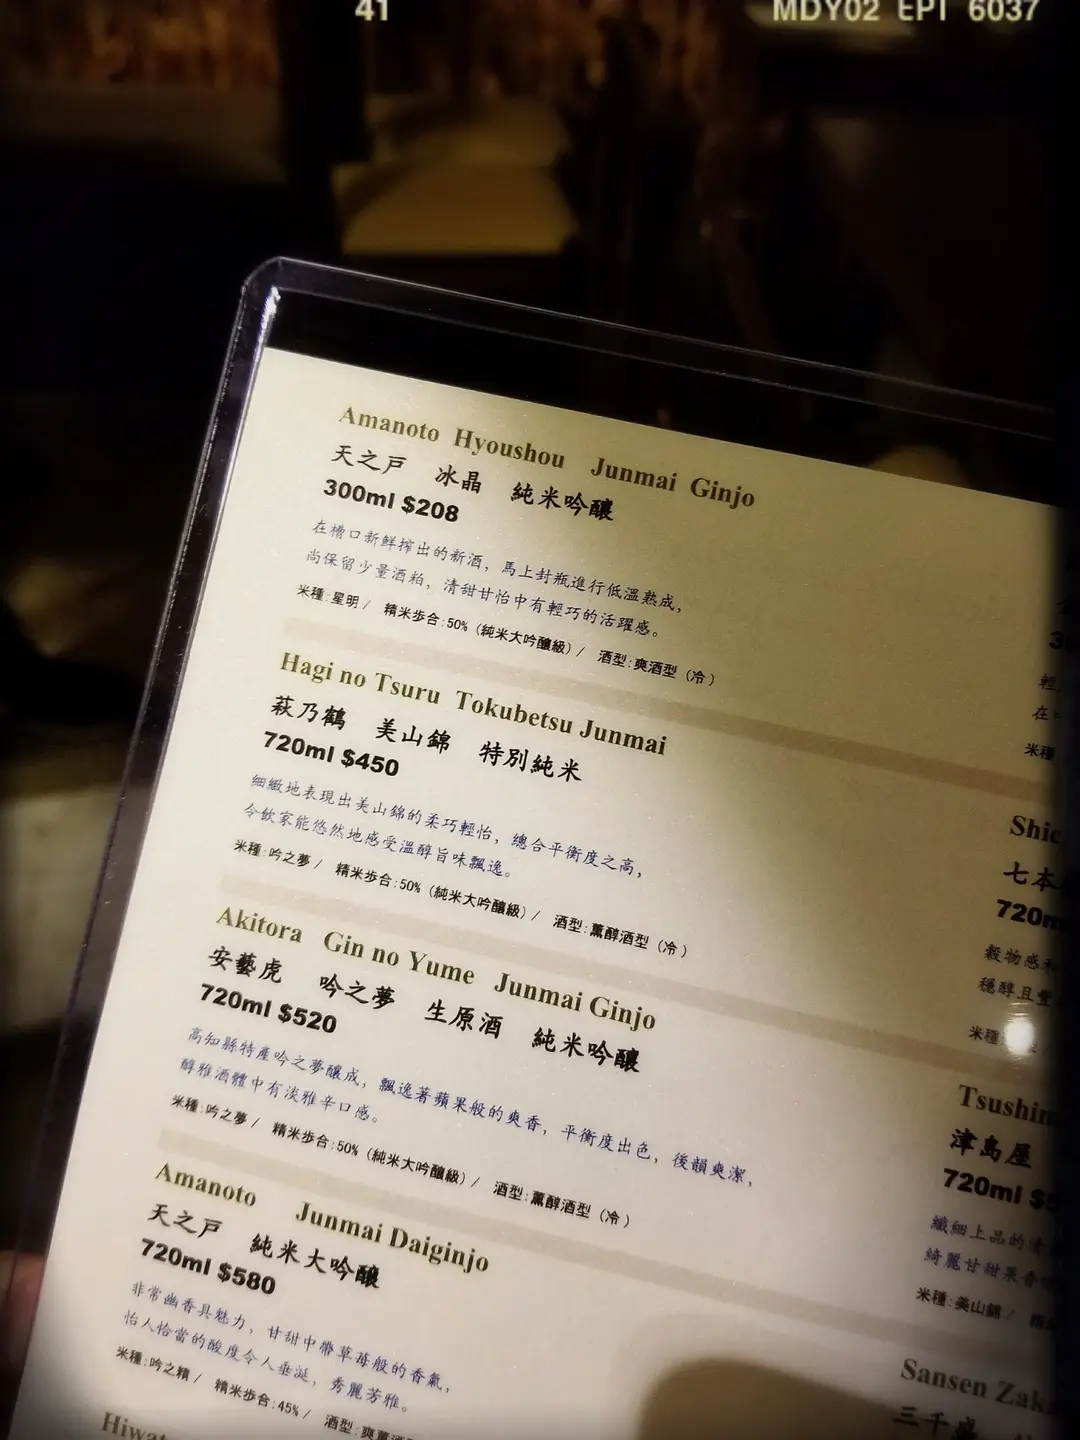 41
MDY02 EPI 6037
Amanoto Hyoushou Junmai Ginjo
天之戸 冰晶 純米吟釀
300ml $208
在槽口新鮮搾出的新酒，馬上封瓶進行低溫熟成，
尚保留少量酒粕，清甜甘怡中有輕巧的活躍感。
米種:星明 / 精米步合:50% (純米大吟釀級) / 酒型:爽酒型 (冷)
Hagi no Tsuru Tokubetsu Junmai
萩乃鶴 美山錦 特別純米
720ml $450
細緻地表現出美山錦的柔巧輕怡，總合平衡度之高，
令飲家能悠然地感受溫醇旨味飄逸。
米種:吟之夢 / 精米步合:50% (純米大吟釀級) / 酒型:薰醇酒型 (冷)
Akitora Gin no Yume Junmai Ginjo
安藝虎 吟之夢 生原酒 純米吟釀
720ml $520
高知縣特產吟之夢釀成，飄逸著蘋果般的爽香，平衡度出色，後韻爽潔，
醇雅酒體中有淡雅辛口感。
米種:吟之夢 / 精米步合:50% (純米大吟釀級) / 酒型:薰醇酒型 (冷)
Amanoto Junmai Daiginjo
天之戸 純米大吟釀
720ml $580
非常幽香具魅力，甘甜中帶草莓般的香氣，
怡人恰當的酸度令人垂涎，秀麗芳雅。
米種:吟之精 / 精米步合:45% / 酒型:爽薰酒
Hiwat
在
米種
Shic
七本
720m
穀物感
穩醇且豐
米種:
Tsushim
津島屋
720ml $5
纖細上品的清
綺麗甘甜果香
米種:美山錦 /
Sansen Zak
三千盛